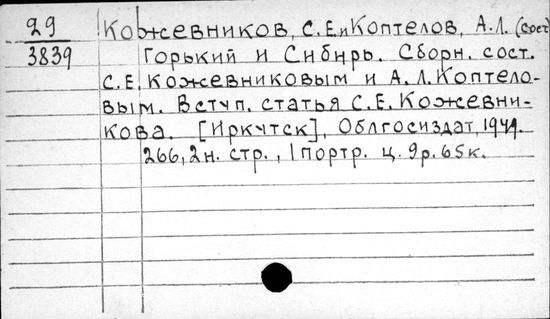 29 Кожевников, С.Е. и Коптелов, А.Л. (сост
3839 Горький и Сибирь. Сборн. сост.
С.Е. Кожевниковым и А.Л. Коптело-
вым. Вступ. статья С.Е. Кожевни-
кова. [Иркутск], Облгосиздат, 1949.
266, 2н. стр., 1 портр. ц. 9р. 65к.